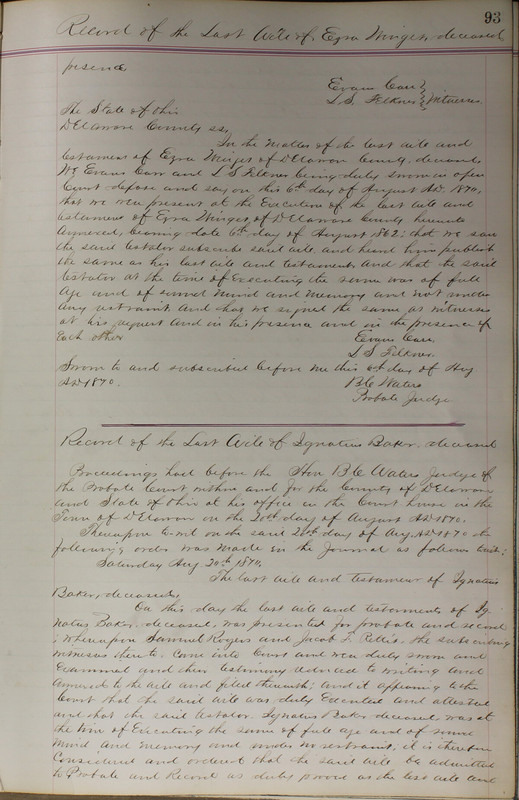 93
Record of the Last Will of Ezra Winger, deceased
presence
Evans Carr }
L S. Felkner } Witnesses
The State of Ohio
Delaware County ss,
In the Matter of the last will and
testament of Ezra Winger of Delaware County, deceased
We Evans Carr and L S Felkner being duly sworn in open
Court depose and say on this 6th day of August AD. 1870,
that we were present at the Execution of the last will and
testament of Ezra Winger, of Delaware County hereunto
annexed, bearing date 6th day of August 1862; that we saw
the said testator subscribe said will, and heard him publish
the same as his last will and testament, and that the said
testator at the time of executing the same was of full
age and of sound mind and memory and not under
any restraint and that we signed the same as witnesses
at his request and in his presence and in the presence of
Each other
Evans Carr
L S Felkner
Sworn to and subscribed before me this 6th day of Aug
AD 1870.
B C Waters
Probate Judge
Record of the Last Will of Ignatius Baker, deceased
Proceedings had before the Hon. B C Waters Judge of
the Probate Court within and for the County of Delaware
and State of Ohio at his office in the Court house in the
Town of Delaware on the 20th day of August AD 1870.
Thereupon to wit on the said 20th day of Aug. AD 1870 the
following order was made in the Journal as follows to wit:
Saturday Aug 20th 1870,
The last will and testament of Ignatius
Baker, deceased,
On this day the last will and testament of Ig-
natius Baker, deceased, was presented for probate and record
; whereupon Samuel Rogers and Jacob the subscribing
witnesses thereto. Came into Court and were duly sworn and
Examined and their testimony reduced to writing and
annexed to the will and filed therewith; and it appearing to the
Court that the said will was duly Executed and attested
and that the said testator. Ignatius Baker deceased, was at
the time of Executing the same of full age and of sound
mind and memory and under no restraint, it is therefore
Considered and ordered that the said will be admitted
to Probate and Record as duly proved as the last will and